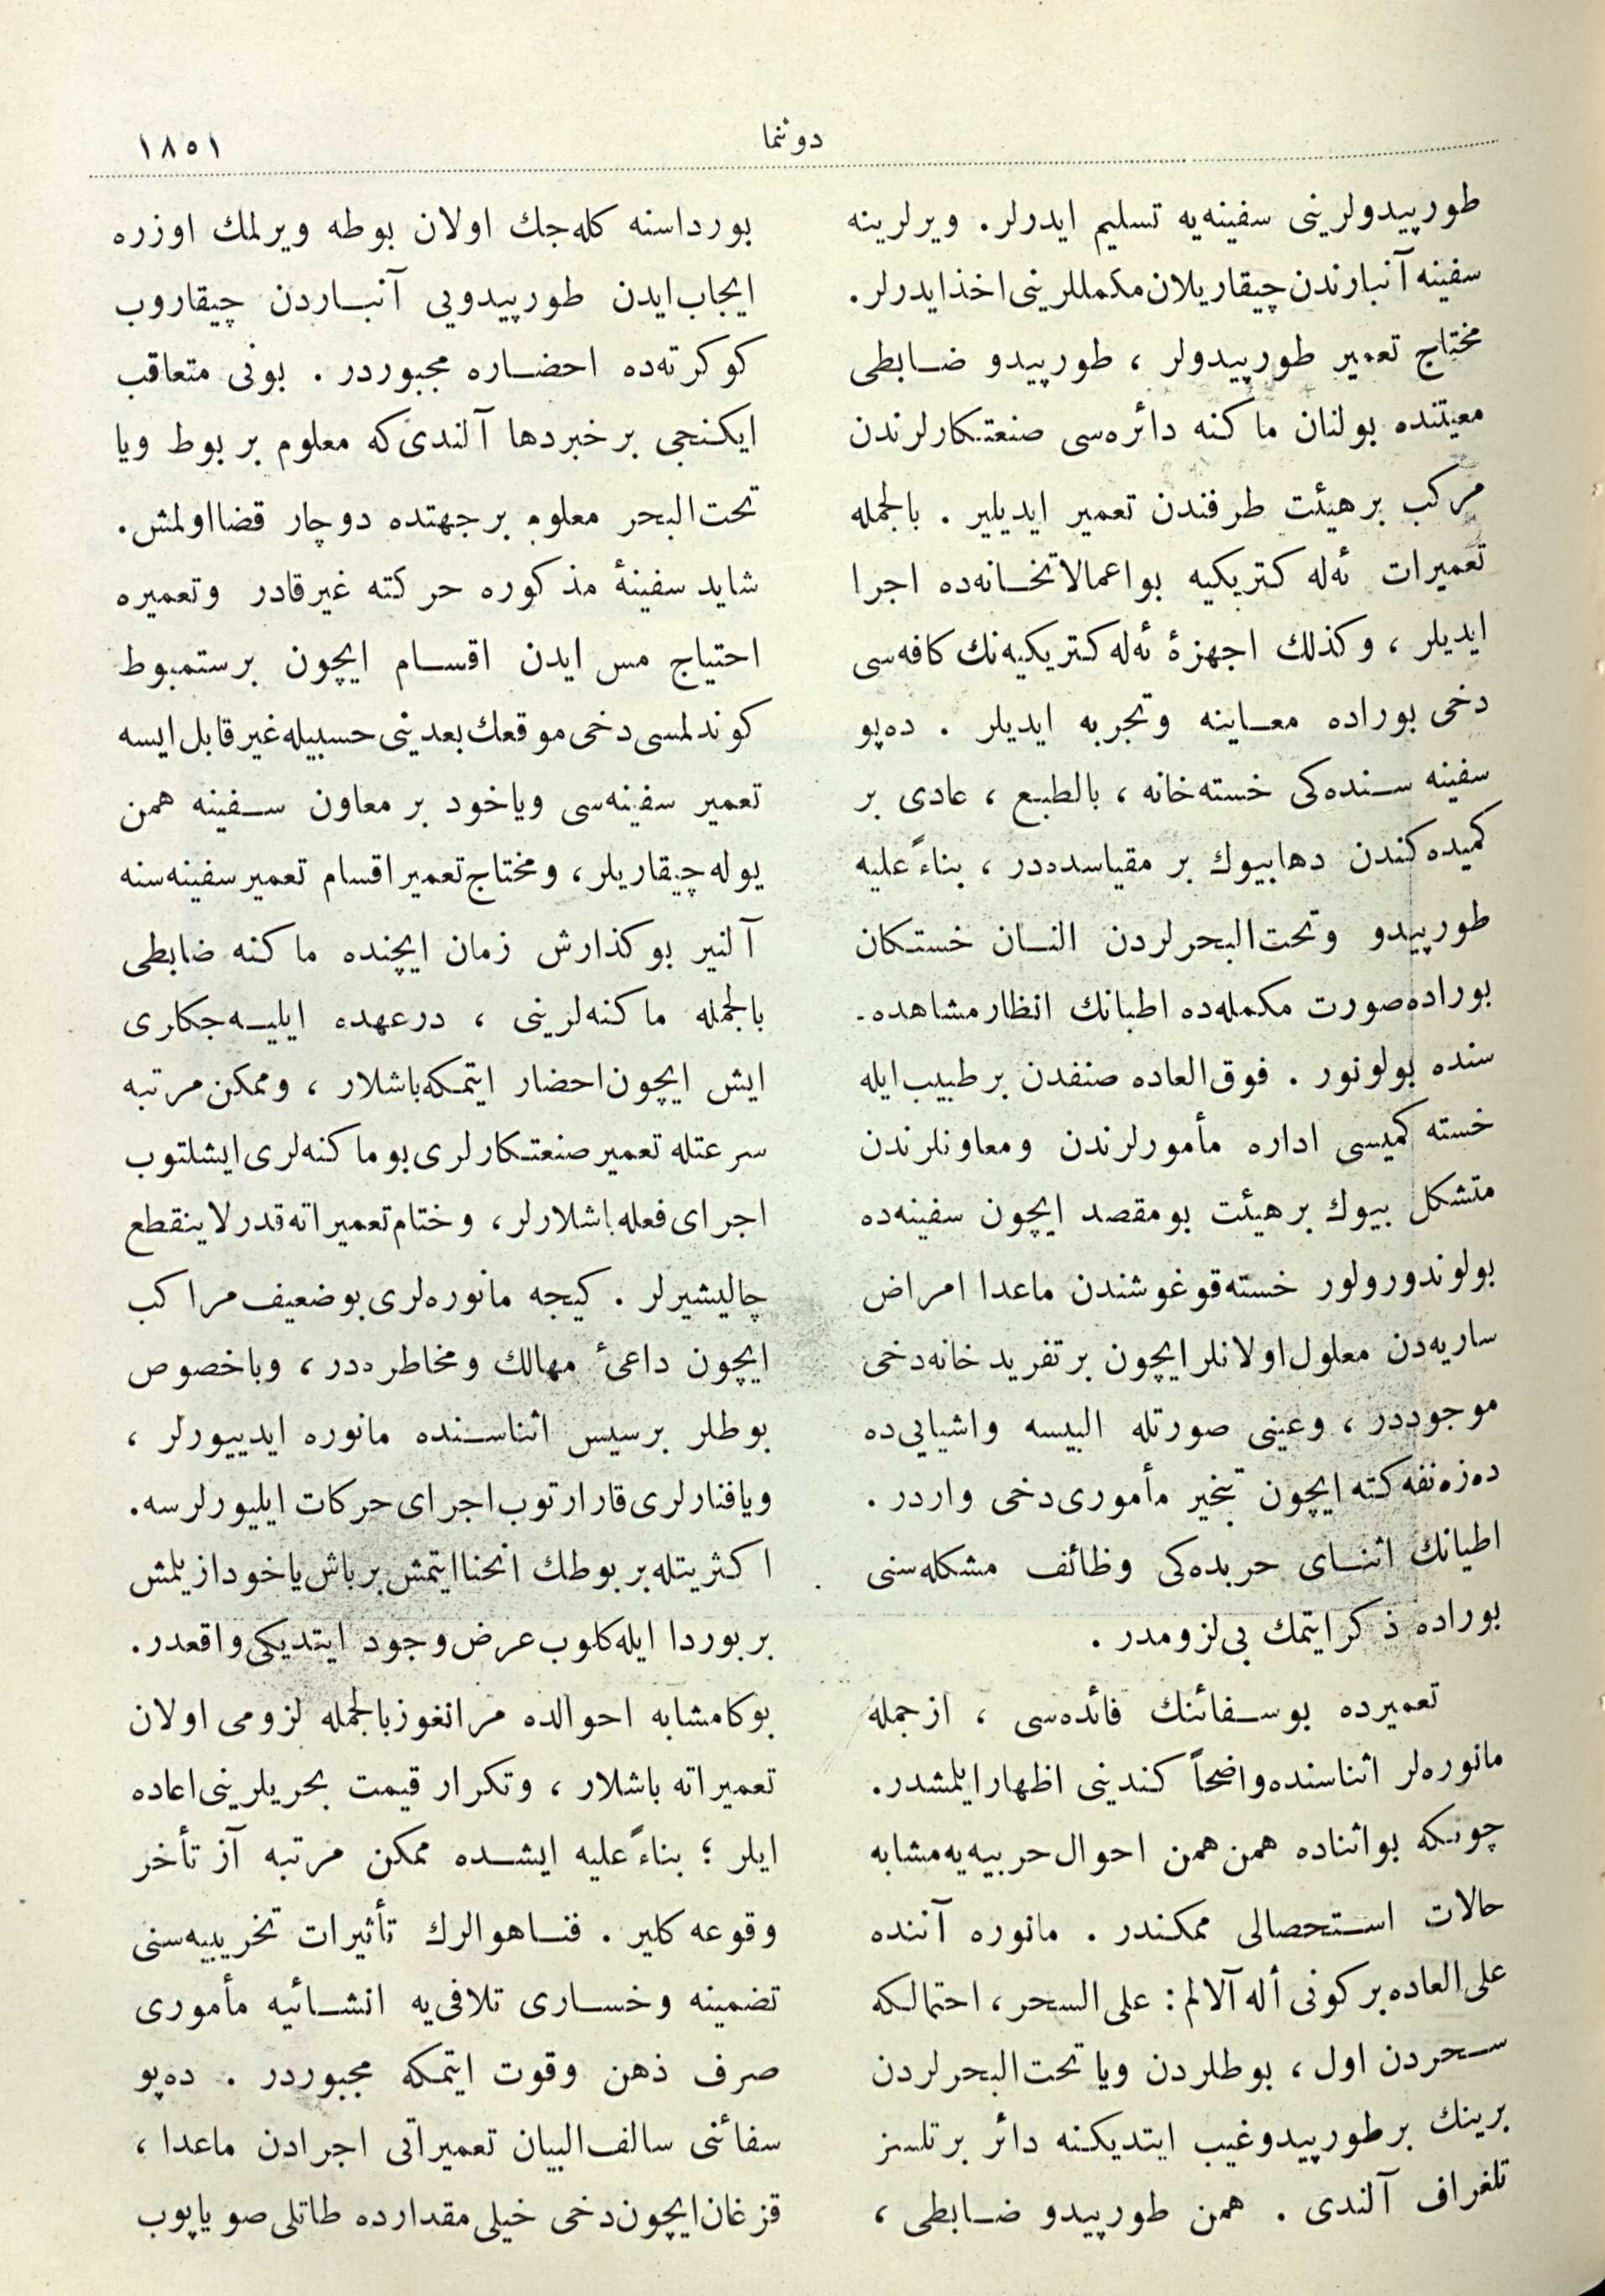 دوننما
١٨٥١
طورپیدولرینی سفینه‌یه تسلیم ایدرلر. ویرلرینه
سفینه آنبارندن چیقاریلان مکمللرینی اخذایدرلر.
محتاج تعمیر طورپیدولر ، طورپیدو ضابطی
معیتنده بولنان ماکنه دائره‌سی صنعتکارلرندن
مرکب بر هیئت طرفندن تعمیر ایدیلیر . بالجمله
تعمیرات ئه‌له کتریکیه بواعمالاتخانه‌ده اجرا
ایدیلر ، وکذلك اجهزهٔ ئه‌له کتریکیه‌نك کافه‌سی
دخی بوراده معاینه وتجربه ایدیلر . ده‌پو
سفینه سنده‌کی خسته‌خانه ، بالطبع ، عادی بر
کمیده‌کندن دهابیوك بر مقیاسده‌در ، بناءً علیه
طورپیدو وتحت‌البحرلردن النان خستکان
بوراده‌صورت مکمله‌ده اطبانك انظارمشاهده-
سنده بولونور . فوق‌العاده صنفدن برطبیب‌ایله
خسته کمیسی اداره مأمورلرندن ومعاونلرندن
متشکل بیوك برهیئت بومقصد ایچون سفینه‌ده
بولوندورولور خسته‌قوغوشندن ماعدا امراض
ساریه‌دن معلول‌اولانلرایچون برتفریدخانه‌دخی
موجوددر ، وعینی صورتله البیسه واشیایی‌ده
ده‌زه‌نفه‌کته‌ایچون تبخیر مأموری‌دخی واردر .
اطبانك اثنای حربده‌کی وظائف مشکله‌سنی
بوراده ذکرایتمك بی‌لزومدر .
تعمیرده بوسفائنك فائده‌سی ، ازجمله
مانوره‌لر اثناسنده‌واضحاً کندینی اظهارایلمشدر.
چونکه بواثناده همن‌همن احوال‌حربیه‌یه‌مشابه
حالات استحصالی ممکندر . مانوره آننده
علی‌العاده‌برکونی أله‌آلالم : علی‌السحر ، احتمالکه
سحردن اول ، بوطلردن ویا تحت‌البحرلردن
برینك برطورپیدوغیب ایتدیکنه دائر برتلسز
تلغراف آلندی . همن طورپیدو ضابطی ،
بورداسنه کله‌جك اولان بوطه ویرلمك اوزره
ایجاب‌ایدن طورپیدویی آنباردن چیقاروب
کوکرته‌ده احضاره مجبوردر . بونی متعاقب
ایکنجی برخبردها آلندی‌که معلوم بر بوط ویا
تحت‌البحر معلوم برجهتده دوچار قضااولمش.
شاید سفینهٔ مذکوره حرکته غیرقادر وتعمیره
احتیاج مس ایدن اقسام ایچون برستمبوط
کوندلمسی دخی‌موقعك‌بعدیتی‌حسبیله‌غیرقابل‌ایسه
تعمیر سفینه‌سی ویاخود بر معاون سفینه همن
یوله‌چیقاریلر ، ومحتاج‌تعمیراقسام تعمیرسفینه‌سنه
آلنیر بوکذارش زمان ایچنده ماکنه ضابطی
بالجمله ماکنه‌لرینی ، درعهده ایلیه‌جکاری
ایش ایچون‌احضار ایتمکه‌باشلار ، وممکن‌مرتبه
سرعتله تعمیرصنعتکارلری‌بوماکنه‌لری‌ایشلتوب
اجرای‌فعله‌باشلارلر ، وختام‌تعمیراته‌قدرلاینقطع
چالیشیرلر . کیجه مانوره‌لری‌بوضعیف‌مراکب
ایچون داعیٔ مهالك ومخاطره‌در ، وباخصوص
بوطلر برسیس اثناسنده مانوره ایدییورلر ،
ویافنارلری‌قارارتوب‌اجرای‌حرکات ایلیورلرسه.
اکثریتله‌بربوطك انحناایتمش‌برباش‌یاخودازیلمش
بربوردا ایله‌کلوب‌عرض‌وجود ایتدیکی‌واقعدر.
بوکامشابه احوالده مرانغوزبالجمله لزومی اولان
تعمیراته باشلار ، وتکرار قیمت بحریلرینی‌اعاده
ایلر ؛ بناءً علیه ایشده ممکن مرتبه آز تأخر
وقوعه‌کلیر . فناهوالرك تأثیرات تخریبیه‌سنی
تضمینه وخساری تلافی‌یه انشائیه مأموری
صرف ذهن وقوت ایتمکه مجبوردر . ده‌پو
سفائنی سالف‌البیان تعمیراتی اجرادن ماعدا ،
قزغان‌ایچون‌دخی خیلی‌مقدارده طاتلی‌صو یاپوب